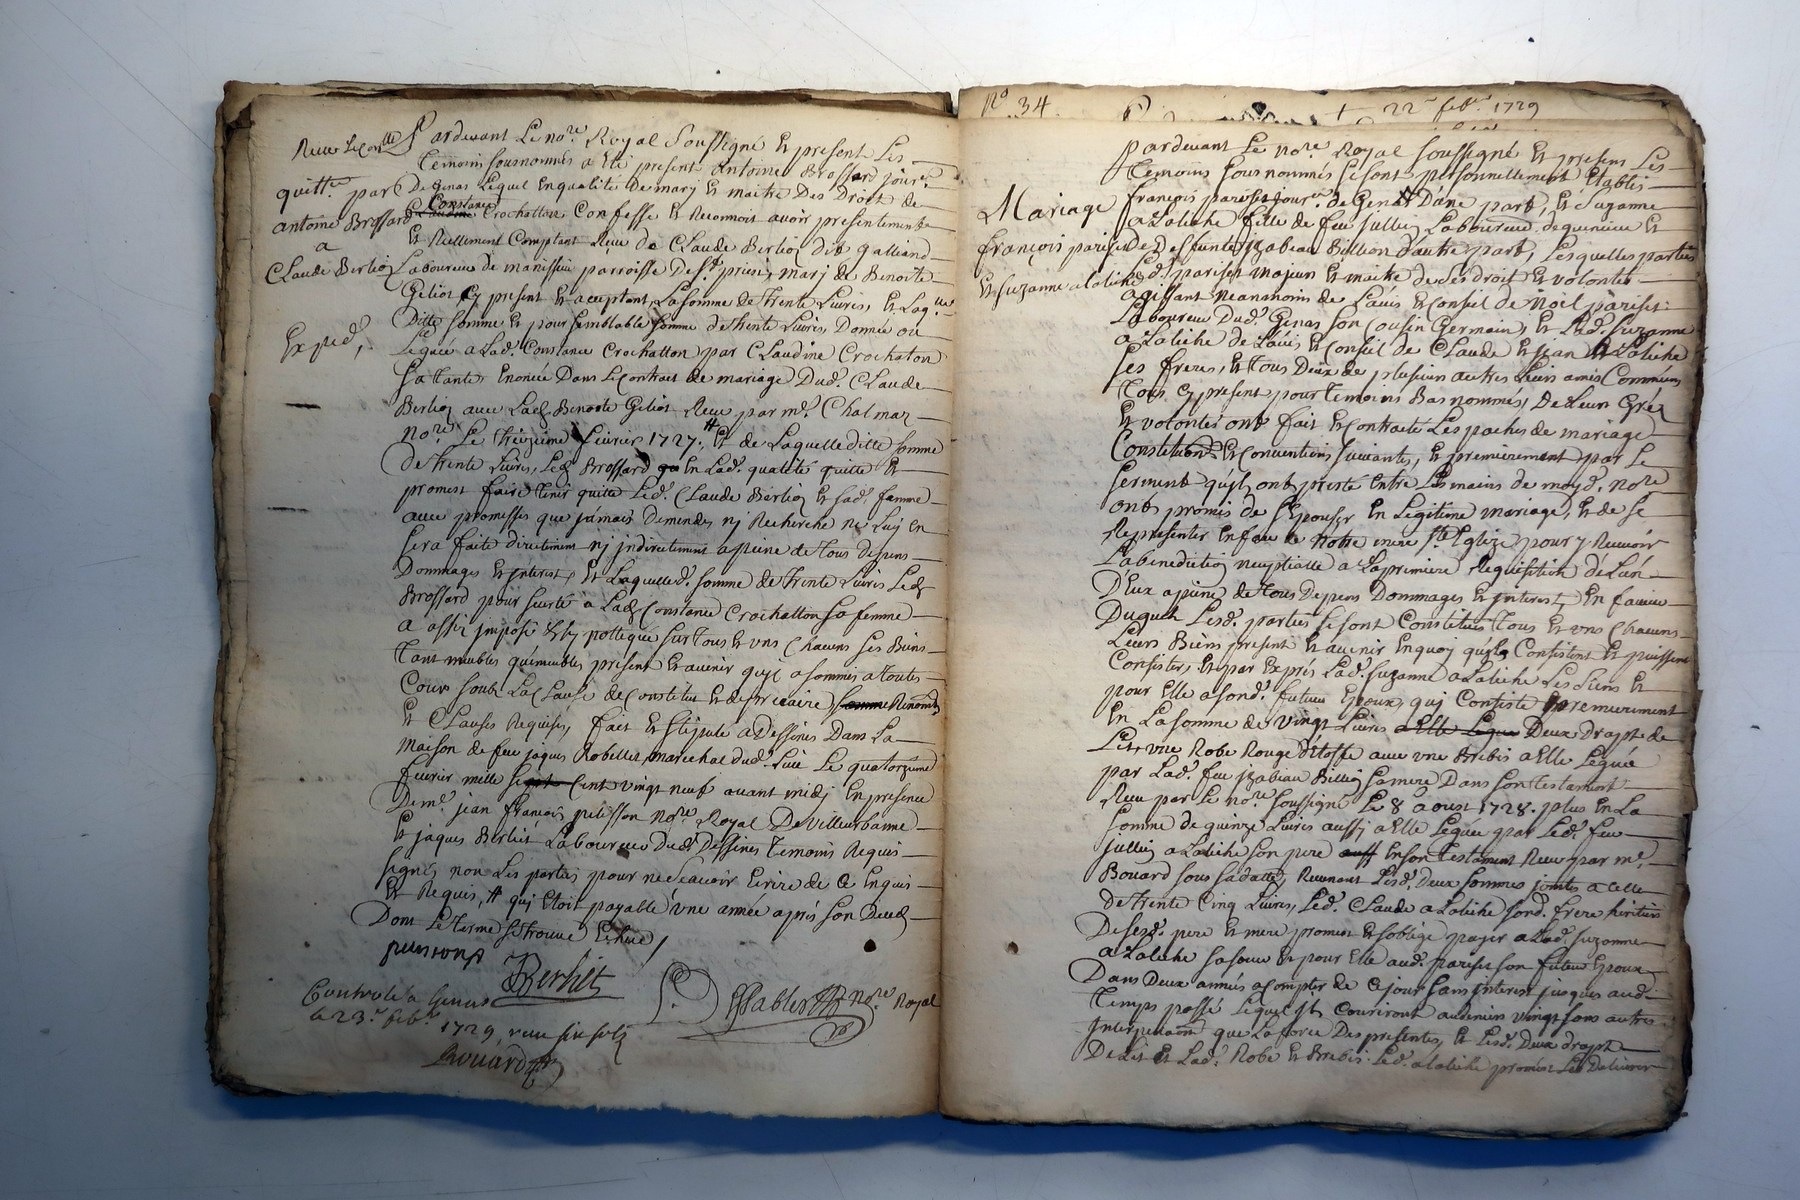 quittce par
antoine Brossard
a
Claude Berlioz
Expedé
Pardevant Le nore Royal Soussigné Et present Les
Temoins sousnommés a Eté present Antoine Brossard jourr
De Genas Lequel En qualité De mary Et maitre Des Droits de
Constance Crochatton Confesse Et Reconnoit avoir presentement
Et Reellement Comptant Reçu de Claude Berlioz dit Galliand
Laboureur de manissieu parroisse De St priest mary de Benoite
Geliot Cy present Et acceptant La somme de Trente Livres, Et Laqlle
Ditte somme Et pour semblable somme de trente Livres Donnée ou
Leguée a Lad. Constance Crochatton par Claudine Crochaton
sa Tante Enoncée Dans Le Contrat de mariage Dud. Claude
Berlioz avec Lad Benoite Geliot Reçu par me Chalmaz
nore Le Treizieme fevrier 1727. # Et de Laquelle ditte somme
De Trente Livres, Led Brossard En Lad. qualité quitte Et
promest faire Tenir quitte Led. Claude Berlioz Et sad. famme
avec promesses que jamais Demande nj Recherche ne Luj En
sera faite directement nj jndirectement a peine de Tous depens
Dommages Et jnterest, Et Laquelle d. somme de Trente Livres Led
Brossard pour sureté a Lad Constance Crochatton sa femme
a assis jmposé Et hypottequé sur Tous Et uns Chacuns ses Biens
Tant meubles qu'immeubles present Et avenir quil a soumis a Toutes
Cours sous La Clause de Constitut Et de precaire
Et Clauses Requises, fait Et stipulé a Dessines Dans La
maison de feu jaques Robellet marechal dud. Lieu Le quatorzieme
fevrier mille sept Cent vingt neuf avant midj En presence
De me jean françois pelisson nore Royal De Villeurbanne
Et jaques Berliet Laboureur Dud Dessines Temoins Requis
signés non Les parties pour ne sçavoir Ecrire de Ce Enquis
Et Requis, # quj Etoit payable une année après son Deces
Dont Le Terme se trouve Echeu /
pelisson
JBerliet
Dessables nore Royal
Controlé a Genas
Le 23e febr 1729, reçu six sols
Bouard
No. 34
+ 22e febr 1729
Mariage
françois pariset
Et Suzanne alatiche
pardevant Le nore Royal soussigné Et presens Les
Temoins sous nommés se sont personnellement Etablis
françois pariset jourr de Genas D'une part, Et Suzanne
alatiche fille de feu jullien Laboureur
Et de deffunte jzabeau Billion d'autre part, Lesquelles parties
Led. pariset majeur Et maitre de ses droit Et volontés
agissant neanmoins de L'avis Et Conseil de noël pariset
Laboureur Dud. Genas son Cousin Germain, Et Lad. Suzanne
alatiche de L'avis Et Conseil de Claude Et jean alatiche
ses freres, Et Tous Deux de plusieurs autres Leurs amis Communs
Tous Cy present pour Temoins Bas nommés, De Leur Gré
Et volontés ont fait Et Contracté Les paches de mariage
Constitutions Et Conventions suivantes, Et premierement par Le
serment qu'ils ont presté Entre Les mains de moyd. nore
ont promis de s'Epouser En Legitime mariage, Et de se
Representer En face de notre mere ste Eglize pour y Recevoir
La benediction nuptialle a La premiere Requisition de L'un
D'Eux a peine de tous depens Dommages Et jnterest, En faveur
Duquel Lesd. parties se sont Constitués Tous Et uns Chacuns
Leurs Biens present Et avenir En quoy qu'ils Consistent Et puissent
Consister, Et par Exprés Lad. Suzanne alatiche Les siens Et
pour Elle a sond. futeur Epoux, quj Consiste premierement
En La somme de vingt Livres Deux draps de
Lit, une Robe Rouge d'Etoffe avec une Brebis a Elle Leguée
par Lad. feu jzabeau Billion sa mere Dans son Testament
Reçu par Le nore soussigné Le 8 aoust 1728. plus En La
somme de quinze Livres aussj a Elle Leguée par Led. feu
jullien alatiche son pere En son Testament Reçu par me
Bouard sous sa datte, Revenant Lesd. Deux sommes jointes a Celle
De Trente Cinq Livres, Led. Claude alatiche sond. frere heritier
De sesd. pere Et mere promest Et s'oblige payer a Lad. Suzanne
alatiche sa sœur Et pour Elle aud. pariset son futeur Epoux
Dans Deux années a Compter de Ce jour sans jnterest jusques aud
Temps passé Lequel Courriront au denier vingt sans autres
jnterpellation que La force Des presentes, Et Lesd. Deux draps
De Lit Et Lad. Robe Et Brebis Led. alatiche promest Les Delivrer